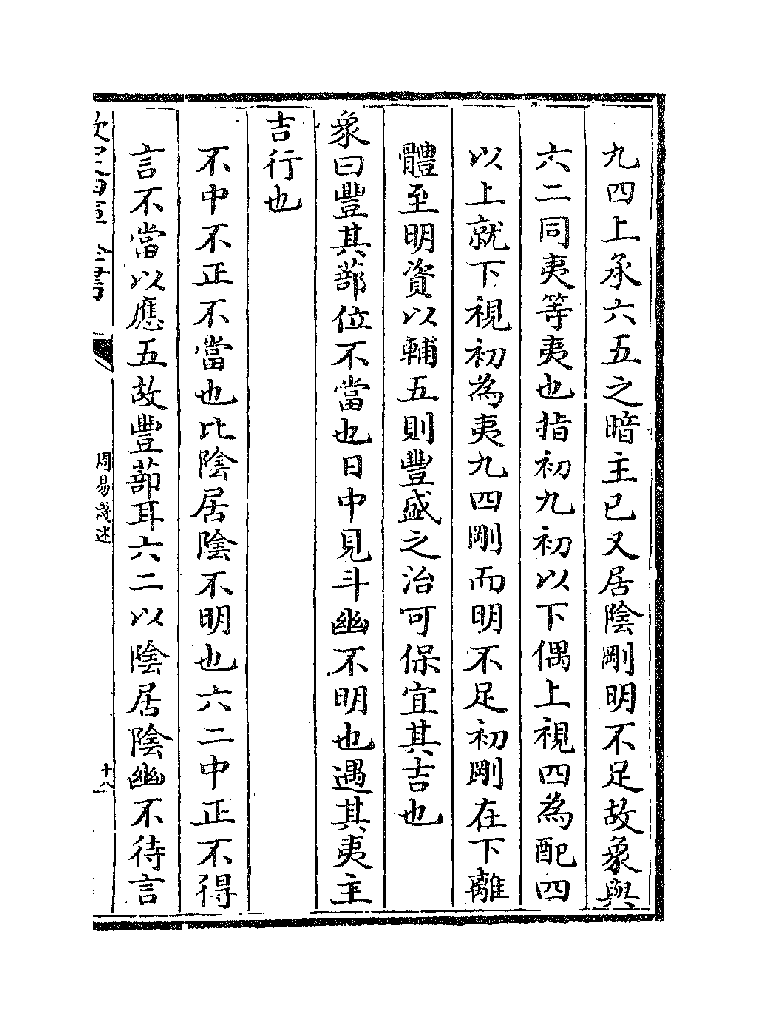 九四上承六五之暗主已又居陰剛明不足故象與
六二同夷等夷也指初九初以下偶上視四為配四
以上就下視初為夷九四剛而明不足初剛在下離
體至明資以輔五則豐盛之治可保宜其吉也
象曰豐其蔀位不當也日中見斗幽不明也遇其夷主
吉行也
不中不正不當也比陰居陰不明也六二中正不得
言不當以應五故豐蔀耳六二以陰居陰幽不待言
欽定四庫全書
周易淺述
十八